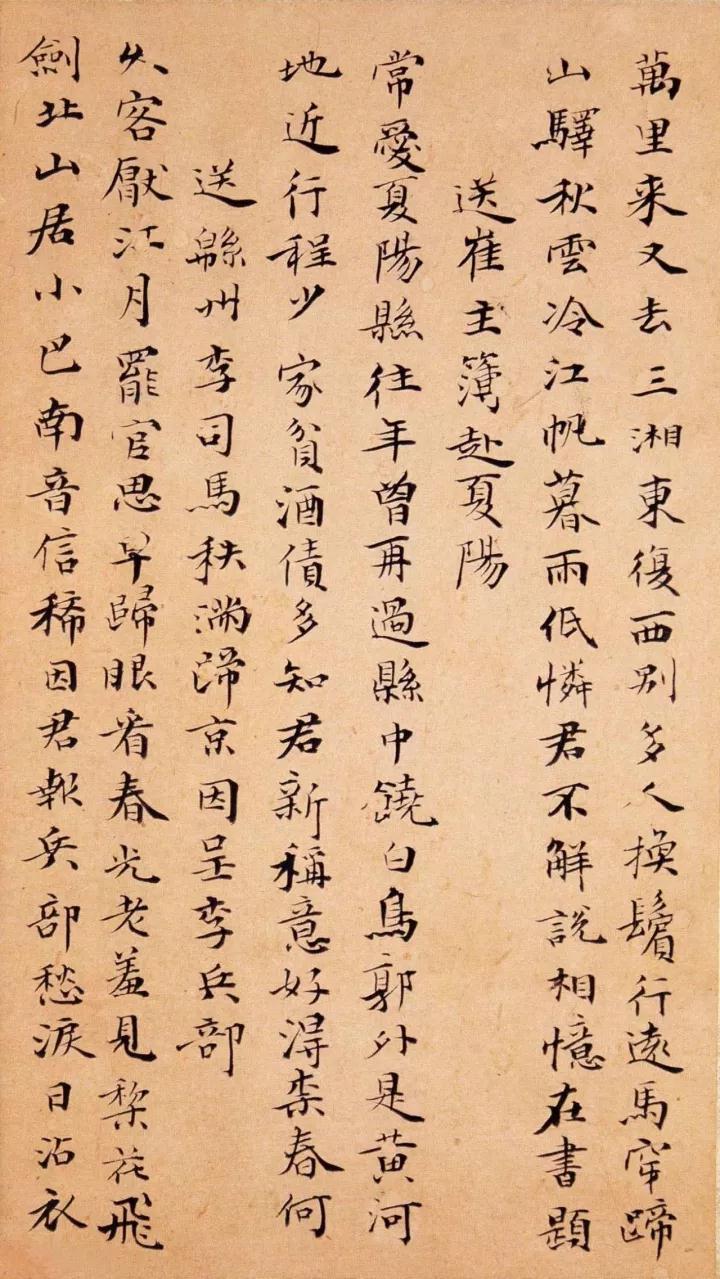 萬里来又去三湘東復西別多人換鬢行遠馬穿蹄
山驛秋雲冷江帆暮雨低憐君不解說相憶在書題
送崔主簿赴夏陽
常愛夏陽縣往年曾再過縣中饒白鳥郭外是黃河
地近行程少家貧酒債多知君新稱意好淂柰春何
送緜州李司馬秩滿歸京因呈李兵部
久客厭江月罷官思早歸眼看春光老羞見棃花飛
劍北山居小巴南音信稀因君報兵部愁淚日沾衣